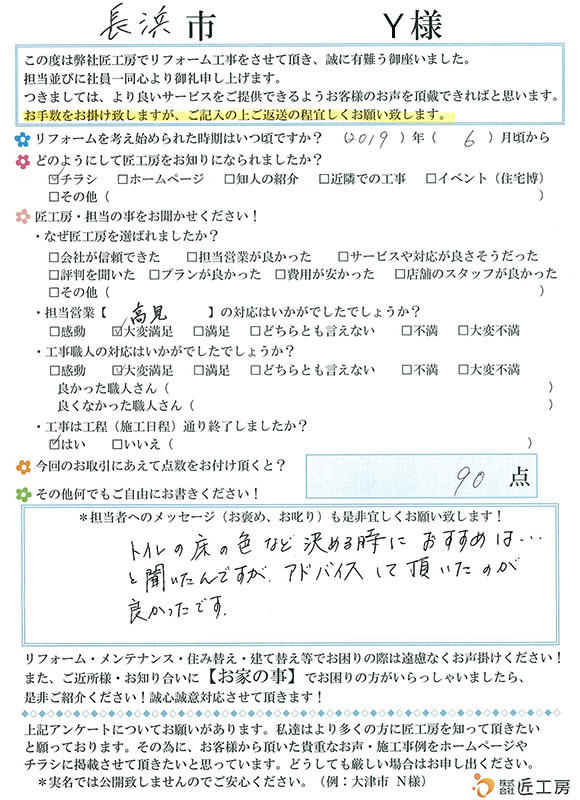 長浜市 Y様
この度は弊社匠工房でリフォーム工事をさせて頂き、誠に有難う御座いました。
担当並びに社員一同心より御礼申し上げます。
つきましては、より良いサービスをご提供できるようお客様のお声を頂戴できればと思います。
お手数をお掛け致しますが、ご記入の上ご返送の程宜しくお願い致します。
リフォームを考え始められた時期はいつ頃ですか？ （2019）年（ 6 ）月頃から
どのようにして匠工房をお知りになられましたか？
☑チラシ □ホームページ □知人の紹介 □近隣での工事 □イベント（住宅博）
□その他（ ）
匠工房・担当の事をお聞かせください！
・なぜ匠工房を選ばれましたか？
□会社が信頼できた □担当営業が良かった □サービスや対応が良さそうだった
□評判を聞いた □プランが良かった □費用が安かった □店舗のスタッフが良かった
□その他（ ）
・担当営業【 高見 】の対応はいかがでしたでしょうか？
□感動 ☑大変満足 □満足 □どちらとも言えない □不満 □大変不満
・工事職人の対応はいかがでしたでしょうか？
□感動 ☑大変満足 □満足 □どちらとも言えない □不満 □大変不満
良かった職人さん（ ）
良くなかった職人さん（ ）
・工事は工程（施工日程）通り終了しましたか？
☑はい □いいえ（ ）
今回のお取引にあえて点数をお付け頂くと？ 90 点
その他何でもご自由にお書きください！
＊担当者へのメッセージ（お褒め、お叱り）も是非宜しくお願い致します！
トイレの床の色など決める時におすすめは…
と聞いたんですが、アドバイスして頂いたのが
良かったです。
リフォーム・メンテナンス・住み替え・建て替え等でお困りの際は遠慮なくお声掛けください！
また、ご近所様・お知り合いに【お家の事】でお困りの方がいらっしゃいましたら、
是非ご紹介ください！誠心誠意対応させて頂きます！
上記アンケートについてお願いがあります。私達はより多くの方に匠工房を知って頂きたい
と願っております。その為に、お客様から頂いた貴重なお声・施工事例をホームページや
チラシに掲載させて頂きたいと思っています。どうしても厳しい場合はお申し出ください。
＊実名では公開致しませんのでご安心ください。（例：大津市 N様）
株式会社匠工房